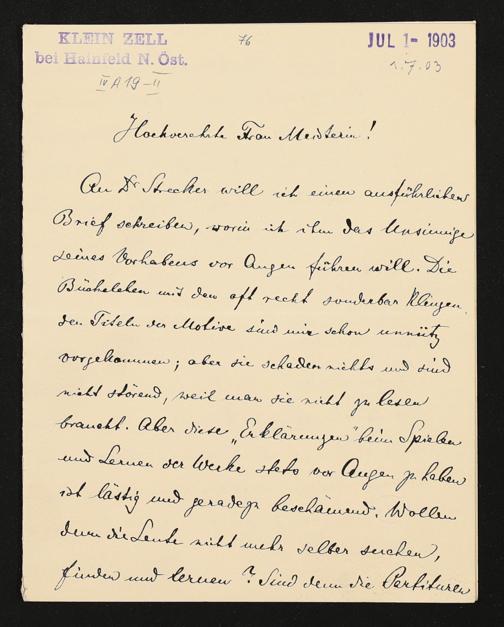 KLEIN ZELL
bei Hainfeld N. Öst.
76
JUL 1- 1903
1.7.03
IV A 19-II
Hochverehrte Frau Meisterin!
An Dr Strecker will ich einen ausführlichen
Brief schreiben, worin ich ihm das Unsinnige
seines Vorhabens vor Augen führen will. Die
Büchelchen mit den oft recht sonderbar klingen-
den Titeln der Motive sind mir schon unnütz
vorgekommen; aber sie schaden nichts und sind
nicht störend, weil man sie nicht zu lesen
braucht. Aber diese „Erklärungen" beim Spielen
und Lernen der Werke stets vor Augen zu haben
ist lästig und geradezu beschämend. Wollen
denn die Leute nicht mehr selber suchen,
finden und lernen? Sind denn die Partituren